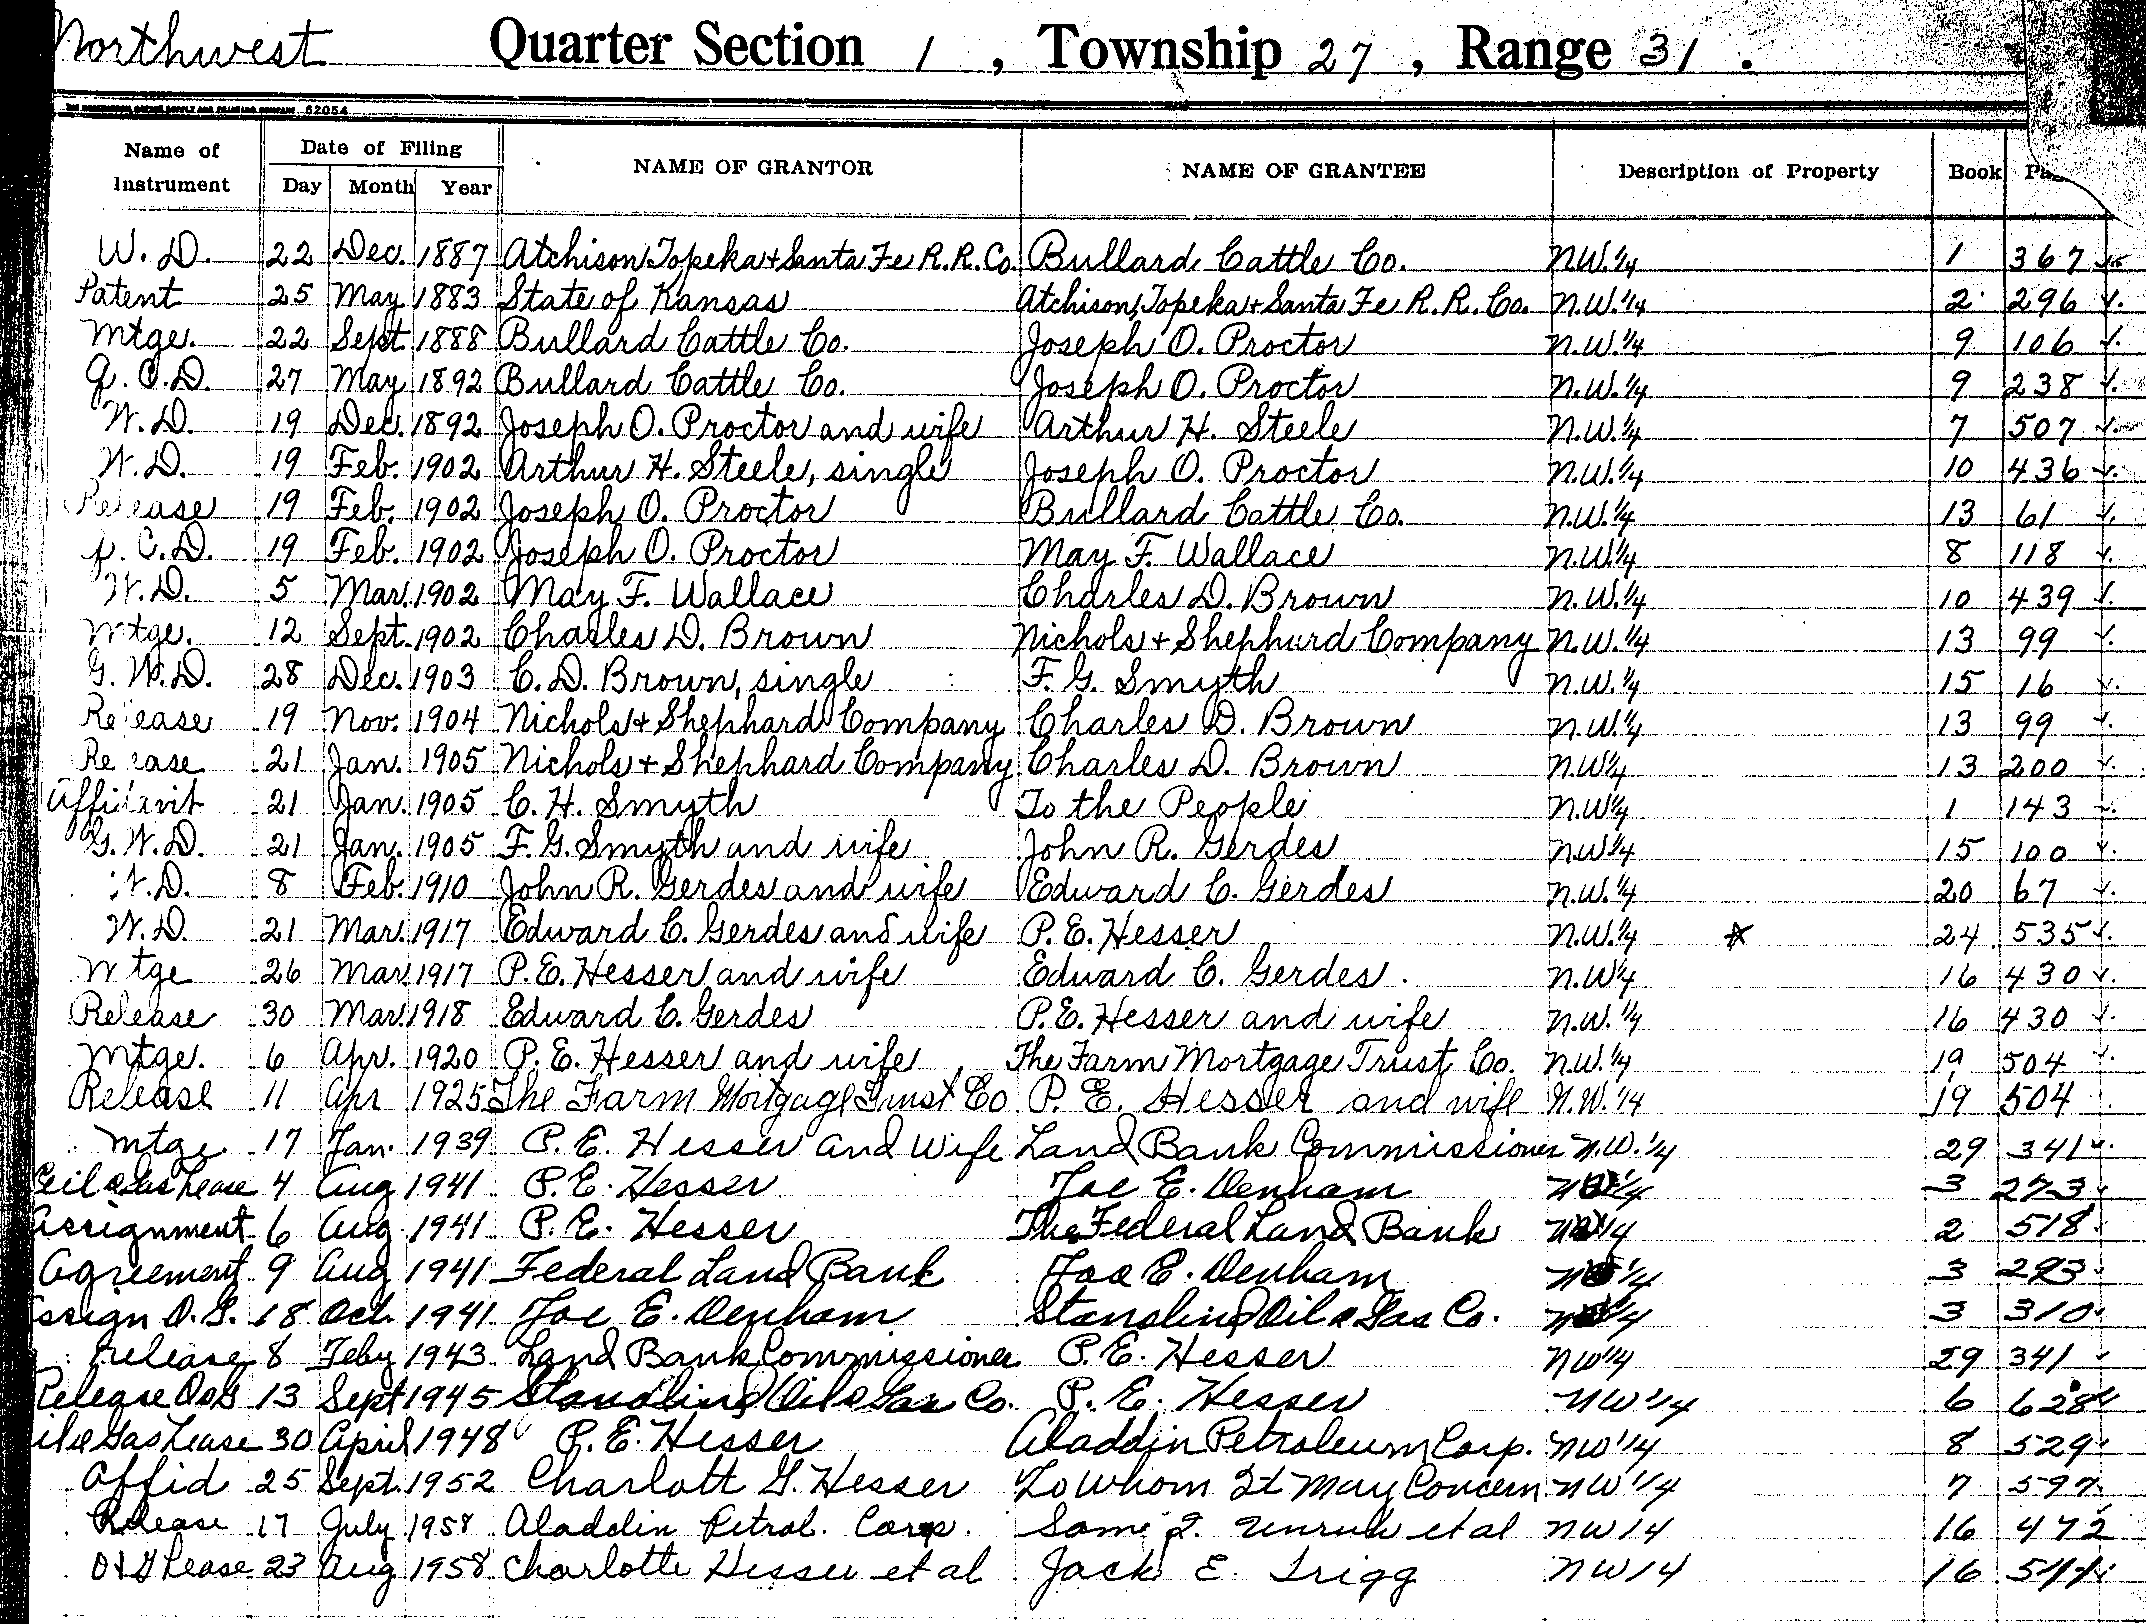 Northwest Quarter Section 1, Township 27, Range 31.
62054
Name of Instrument Date of Filing Day Month Year NAME OF GRANTOR NAME OF GRANTEE Description of Property Book
W. D. 22 Dec. 1887 Atchison, Topeka + Santa Fe R.R. Co. Bullard Cattle Co. NW. 1/4 1 367
Patent 25 May 1883 State of Kansas Atchison, Topeka + Santa Fe R. R. Co. N.W. 1/4 2 296
Mtge. 22 Sept. 1888 Bullard Cattle Co. Joseph O. Proctor N.W. 1/4 9 106
Q. C. D. 27 May 1892 Bullard Cattle Co. Joseph O. Proctor N.W. 1/4 9 238
W. D. 19 Dec. 1892 Joseph O. Proctor and wife Arthur H. Steele N.W. 1/4 7 507
W. D. 19 Feb. 1902 Arthur H. Steele, single Joseph O. Proctor N.W. 1/4 10 436
Release 19 Feb. 1902 Joseph O. Proctor Bullard Cattle Co. N.W. 1/4 13 61
C. D. 19 Feb. 1902 Joseph O. Proctor May F. Wallace N.W. 1/4 8 118
W. D. 5 Mar. 1902 May F. Wallace Charles D. Brown N.W. 1/4 10 439
Mtge. 12 Sept. 1902 Charles D. Brown Nichols + Shephurd Company N.W. 1/4 13 99
G. W. D. 28 Dec. 1903 C. D. Brown, single F. G. Smyth N.W. 1/4 15 16
Release 19 Nov. 1904 Nichols + Shephard Company Charles D. Brown N.W. 1/4 13 99
Release 21 Jan. 1905 Nichols + Shephard Company Charles D. Brown N.W 1/4 13 200
Affidavit 21 Jan. 1905 C. H. Smyth To the People N.W 1/4 1 143
G. W. D. 21 Jan. 1905 F. G. Smyth and wife John R. Gerdes N.W 1/4 15 100
W. D. 8 Feb. 1910 John R. Gerdes and wife Edward C. Gerdes N.W. 1/4 20 67
W. D. 21 Mar. 1917 Edward C. Gerdes and wife P. E. Hesser N.W. 1/4 * 24 535
Mtge 26 Mar. 1917 P. E. Hesser and wife Edward C. Gerdes. N.W 1/4 16 430
Release 30 Mar. 1918 Edward C. Gerdes P. E. Hesser and wife N.W. 1/4 16 430
Mtge. 6 Apr. 1920 P. E. Hesser and wife The Farm Mortgage Trust Co. N.W. 1/4 19 504
Release 11 Apr 1925 The Farm Mortgage Trust Co P. E. Hesser and wife N.W. 1/4 19 504
Mtge 17 Jan. 1939 P. E. Hesser and Wife Land Bank Commissioner N.W. 1/4 29 341
Oil & Gas Lease 4 Aug 1941 P. E. Hesser Joe E. Denham 1/4 3 273
Assignment 6 Aug. 1941 P. E. Hesser The Federal Land Bank 1/4 2 518
Agreement 9 Aug 1941 Federal Land Bank Joe E. Denham 1/4 3 293
Assign O. G. 18 Oct. 1941 Joe E. Denham Stanolind Oil & Gas Co. 1/4 3 310
Release 8 Feby 1943 Land Bank Commissioner P. E. Hesser NW 1/4 29 341
Release O&G 13 Sept 1945 Stanolind Oil & Gas Co. P. E. Hesser NW 1/4 6 628
Oil & Gas Lease 30 April 1948 P. E. Hesser Aladdin Petroleum Corp. NW 1/4 8 529
Affid 25 Sept. 1952 Charlott G. Hesser To Whom It May Concern NW 1/4 7 597
Release 17 July 1958 Aladdin Petrol. Corp. Unruh et al NW 1/4 16 472
O & G Lease 23 Aug 1958 Charlotte Hesser et al Jack E. Trigg NW 1/4 16